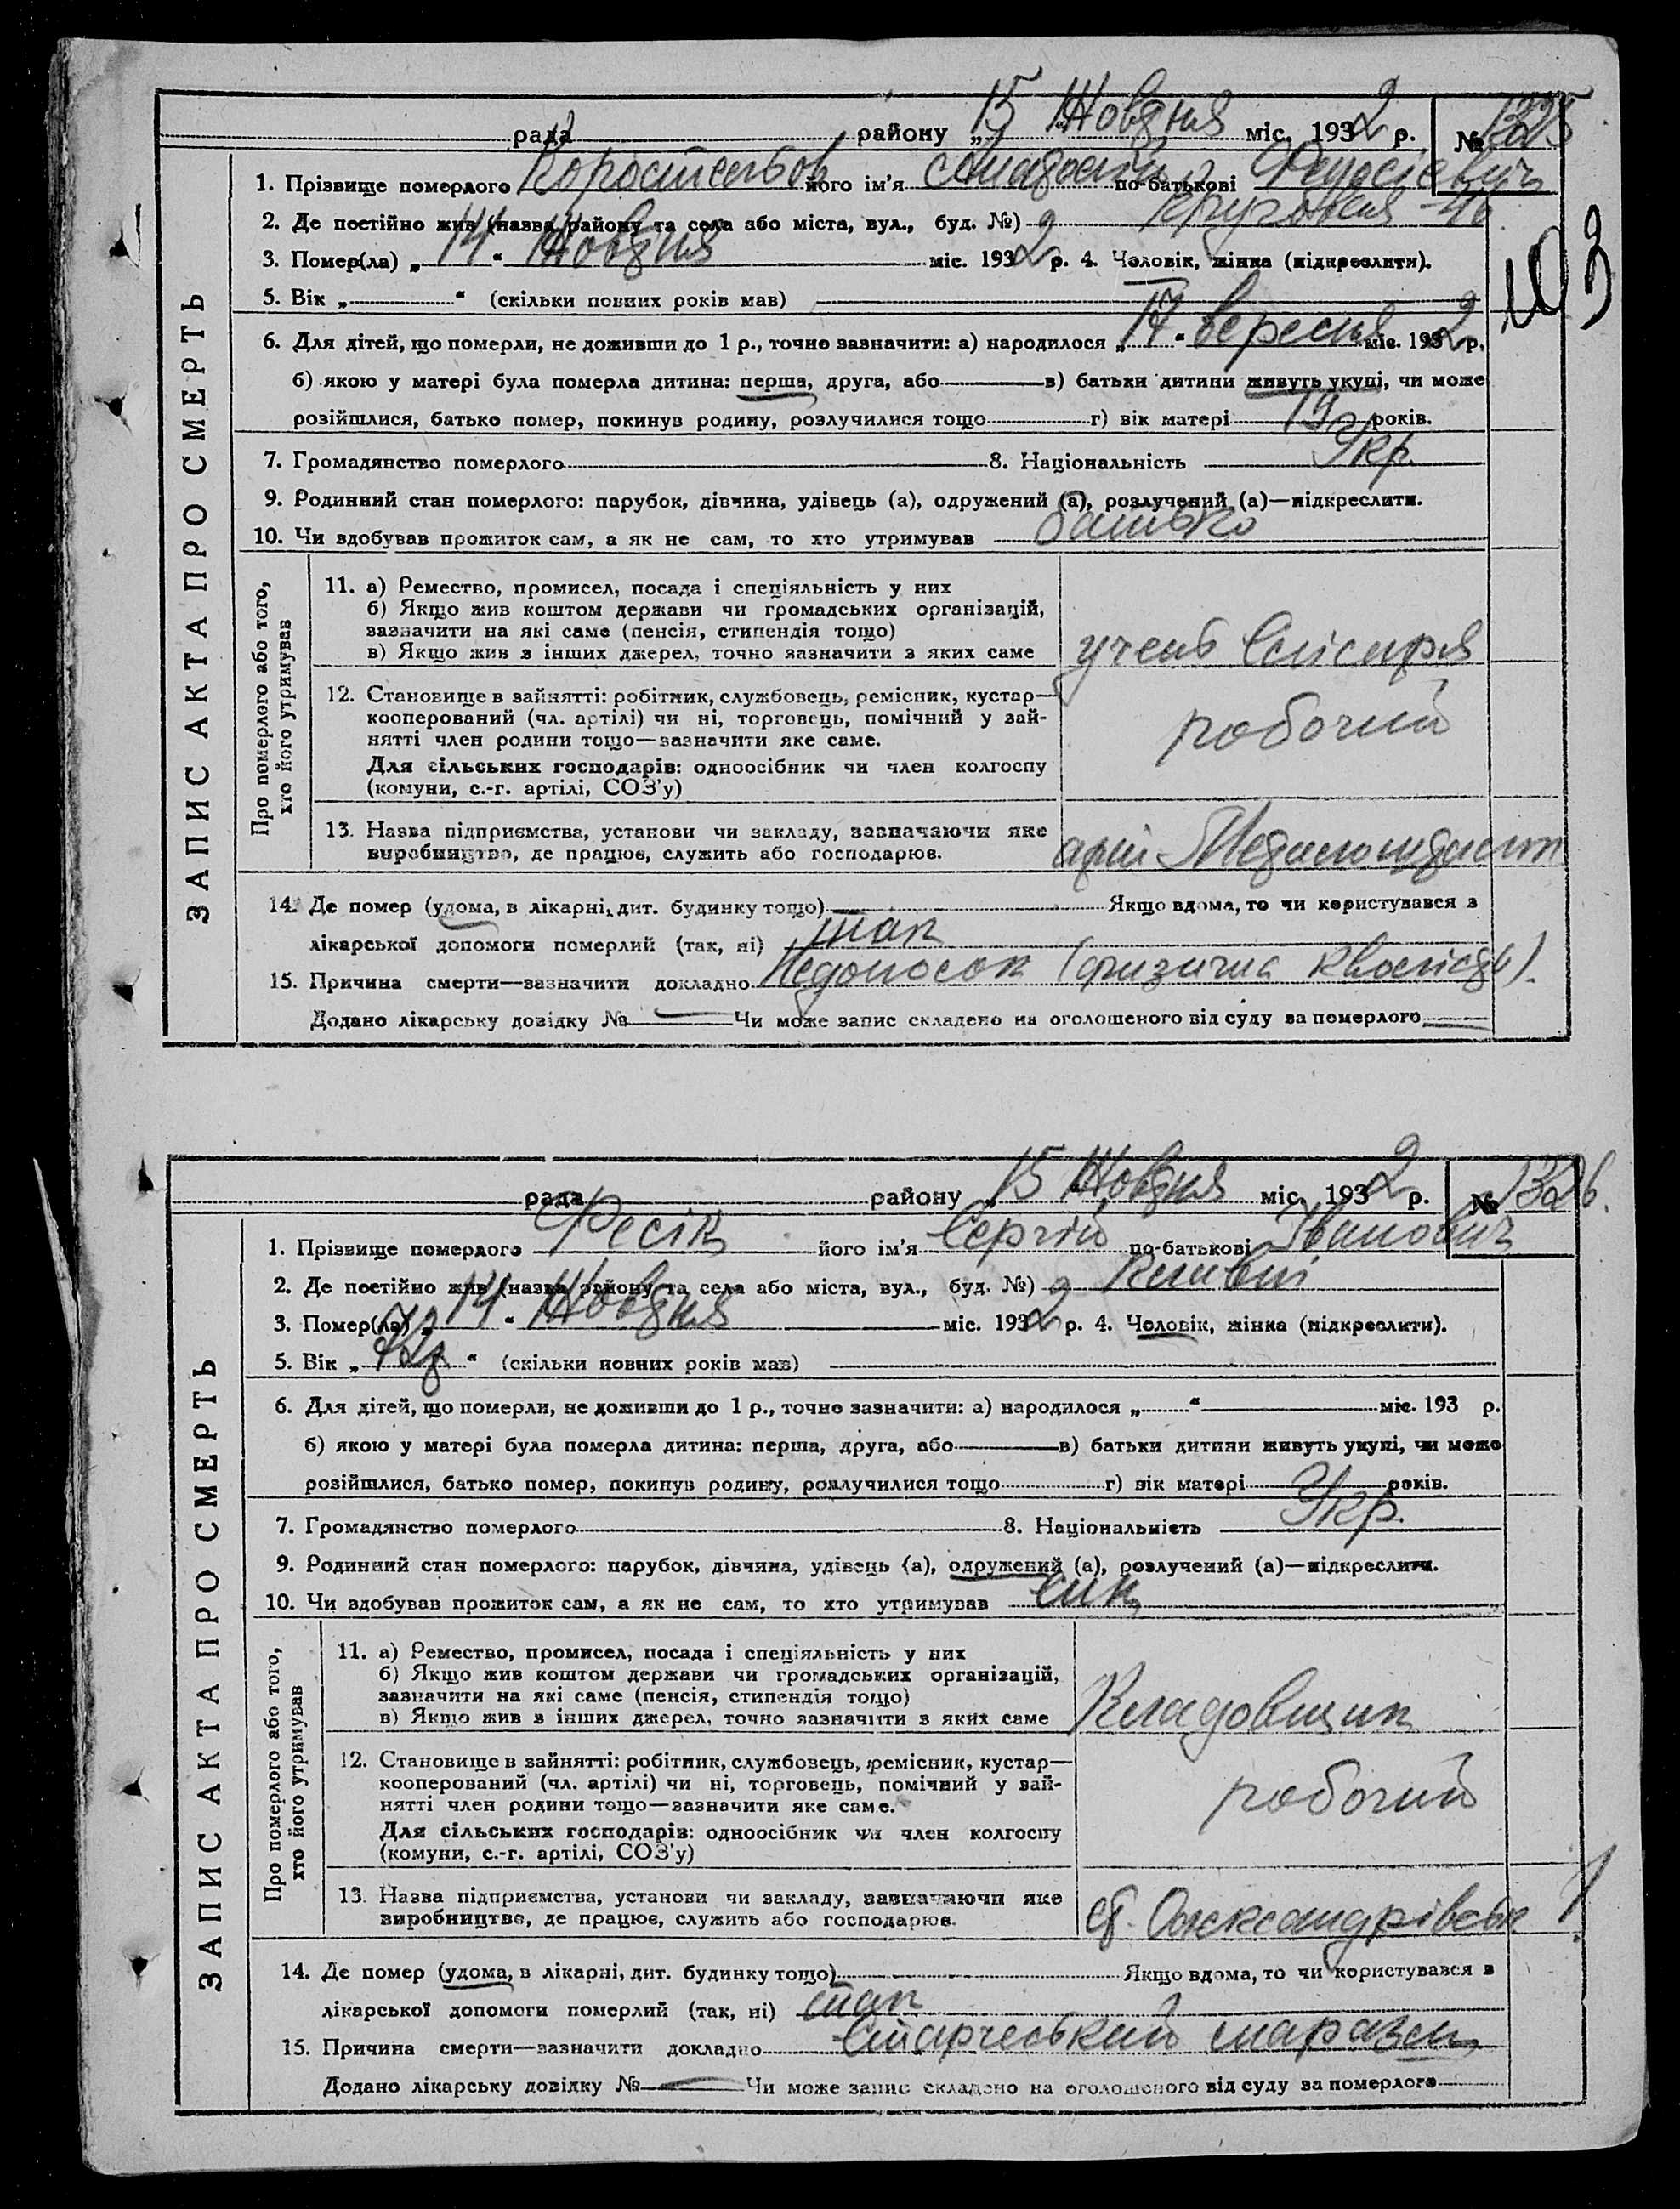 рада району „15" Жовдня міс. 1932 р. № 1325
1. Прізвище померлого Коростельов його ім'я Анатолій по-батькові Федосієвич
2. Де постійно жив (назва району та села або міста, вул., буд. №) Кругова 46
3. Помер(ла) „14" Жовдня міс. 1932 р. 4. Чоловік, жінка (підкреслити).
103
5. Вік „ " (скільки повних років мав)
6. Для дітей, що померли, не доживши до 1 р., точно зазначити: а) народилося „17" вересня міс. 1932 р.
б) якою у матері була померла дитина: перша, друга, або в) батьки дитини живуть укупі, чи може
розійшлися, батько помер, покинув родину, розлучилися тощо г) вік матері 19 років.
7. Громадянство померлого 8. Національність Укр.
9. Родинний стан померлого: парубок, дівчина, удівець (а), одружений (а), розлучений (а)—підкреслити.
10. Чи здобував прожиток сам, а як не сам, то хто утримував батько
ЗАПИС АКТА ПРО СМЕРТЬ
Про померлого або того,
хто його утримував
11. а) Ремество, промисел, посада і спеціяльність у них
б) Якщо жив коштом держави чи громадських організацій,
зазначити на які саме (пенсія, стипендія тощо)
в) Якщо жив з інших джерел, точно зазначити з яких саме
учень слісаря
12. Становище в зайнятті: робітник, службовець, ремісник, кустар—
кооперований (чл. артілі) чи ні, торговець, помічний у зай-
нятті член родини тощо—зазначити яке саме.
робочий
Для сільських господарів: одноосібник чи член колгоспу
(комуни, с.-г. артілі, СОЗ'у)
13. Назва підприємства, установи чи закладу, зазначаючи яке
виробництво, де працює, служить або господарює.
14. Де помер (удома, в лікарні, дит. будинку тощо) Якщо вдома, то чи користувався з
лікарської допомоги померлий (так, ні) так
15. Причина смерти—зазначити докладно Недоносок (физична квалість).
Додано лікарську довідку № — Чи може запис складено на оголошеного від суду за померлого
рада району „15" Жовдня міс. 1932 р. № 1326.
1. Прізвище померлого Фесік його ім'я Сергій по-батькові Іванович
2. Де постійно жив (назва району та села або міста, вул., буд. №)
3. Помер(ла) „14" Жовдня міс. 1932 р. 4. Чоловік, жінка (підкреслити).
5. Вік „72" (скільки повних років мав)
6. Для дітей, що померли, не доживши до 1 р., точно зазначити: а) народилося „ " міс. 193 р.
б) якою у матері була померла дитина: перша, друга, або в) батьки дитини живуть укупі, чи може
розійшлися, батько помер, покинув родину, розлучилися тощо г) вік матері років.
7. Громадянство померлого 8. Національність Укр.
9. Родинний стан померлого: парубок, дівчина, удівець (а), одружений (а), розлучений (а)—підкреслити.
10. Чи здобував прожиток сам, а як не сам, то хто утримував син
ЗАПИС АКТА ПРО СМЕРТЬ
Про померлого або того,
хто його утримував
11. а) Ремество, промисел, посада і спеціяльність у них
б) Якщо жив коштом держави чи громадських організацій,
зазначити на які саме (пенсія, стипендія тощо)
в) Якщо жив з інших джерел, точно зазначити з яких саме
Кладовщик
12. Становище в зайнятті: робітник, службовець, ремісник, кустар—
кооперований (чл. артілі) чи ні, торговець, помічний у зай-
нятті член родини тощо—зазначити яке саме.
робочий
Для сільських господарів: одноосібник чи член колгоспу
(комуни, с.-г. артілі, СОЗ'у)
13. Назва підприємства, установи чи закладу, зазначаючи яке
виробництво, де працює, служить або господарює.
ст. Олександрівськ
14. Де помер (удома, в лікарні, дит. будинку тощо) Якщо вдома, то чи користувався з
лікарської допомоги померлий (так, ні) так
15. Причина смерти—зазначити докладно Старчеський маразм
Додано лікарську довідку № — Чи може запис складено на оголошеного від суду за померлого